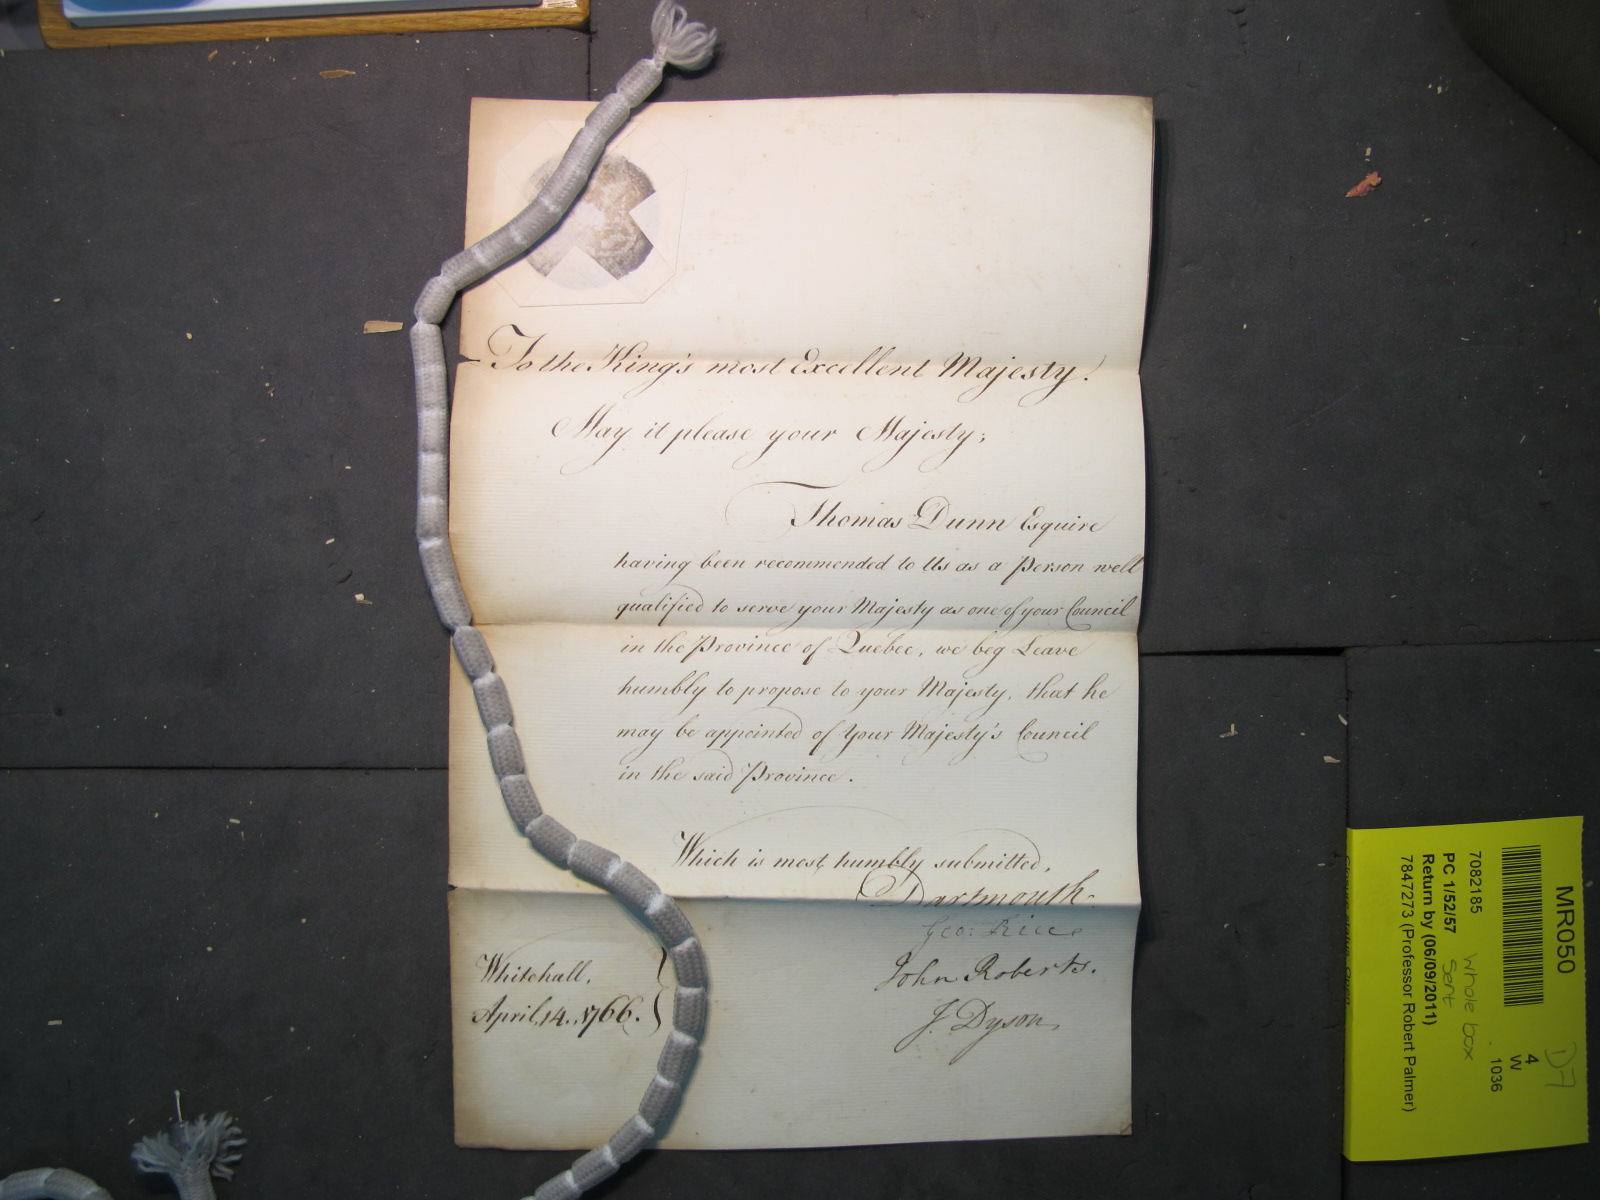 To the King's most Excellent Majesty.
May it please your Majesty;
Thomas Dunn Esquire
having been recommended to Us as a Person well
qualified to serve your Majesty as one of your Council
in the Province of Quebec, we beg Leave
humbly to propose to your Majesty, that he
may be appointed of Your Majesty's Council
in the said Province.
Which is most humbly submitted,
Dartmouth
Geo: Rice
John Roberts.
J. Dyson
Whitehall,
April, 14., 1766.
MR050
7082185
PC 1/52/57
Return by (06/09/2011)
7847273 (Professor Robert Palmer)
Whole box
Sent
4
W
1036
D7